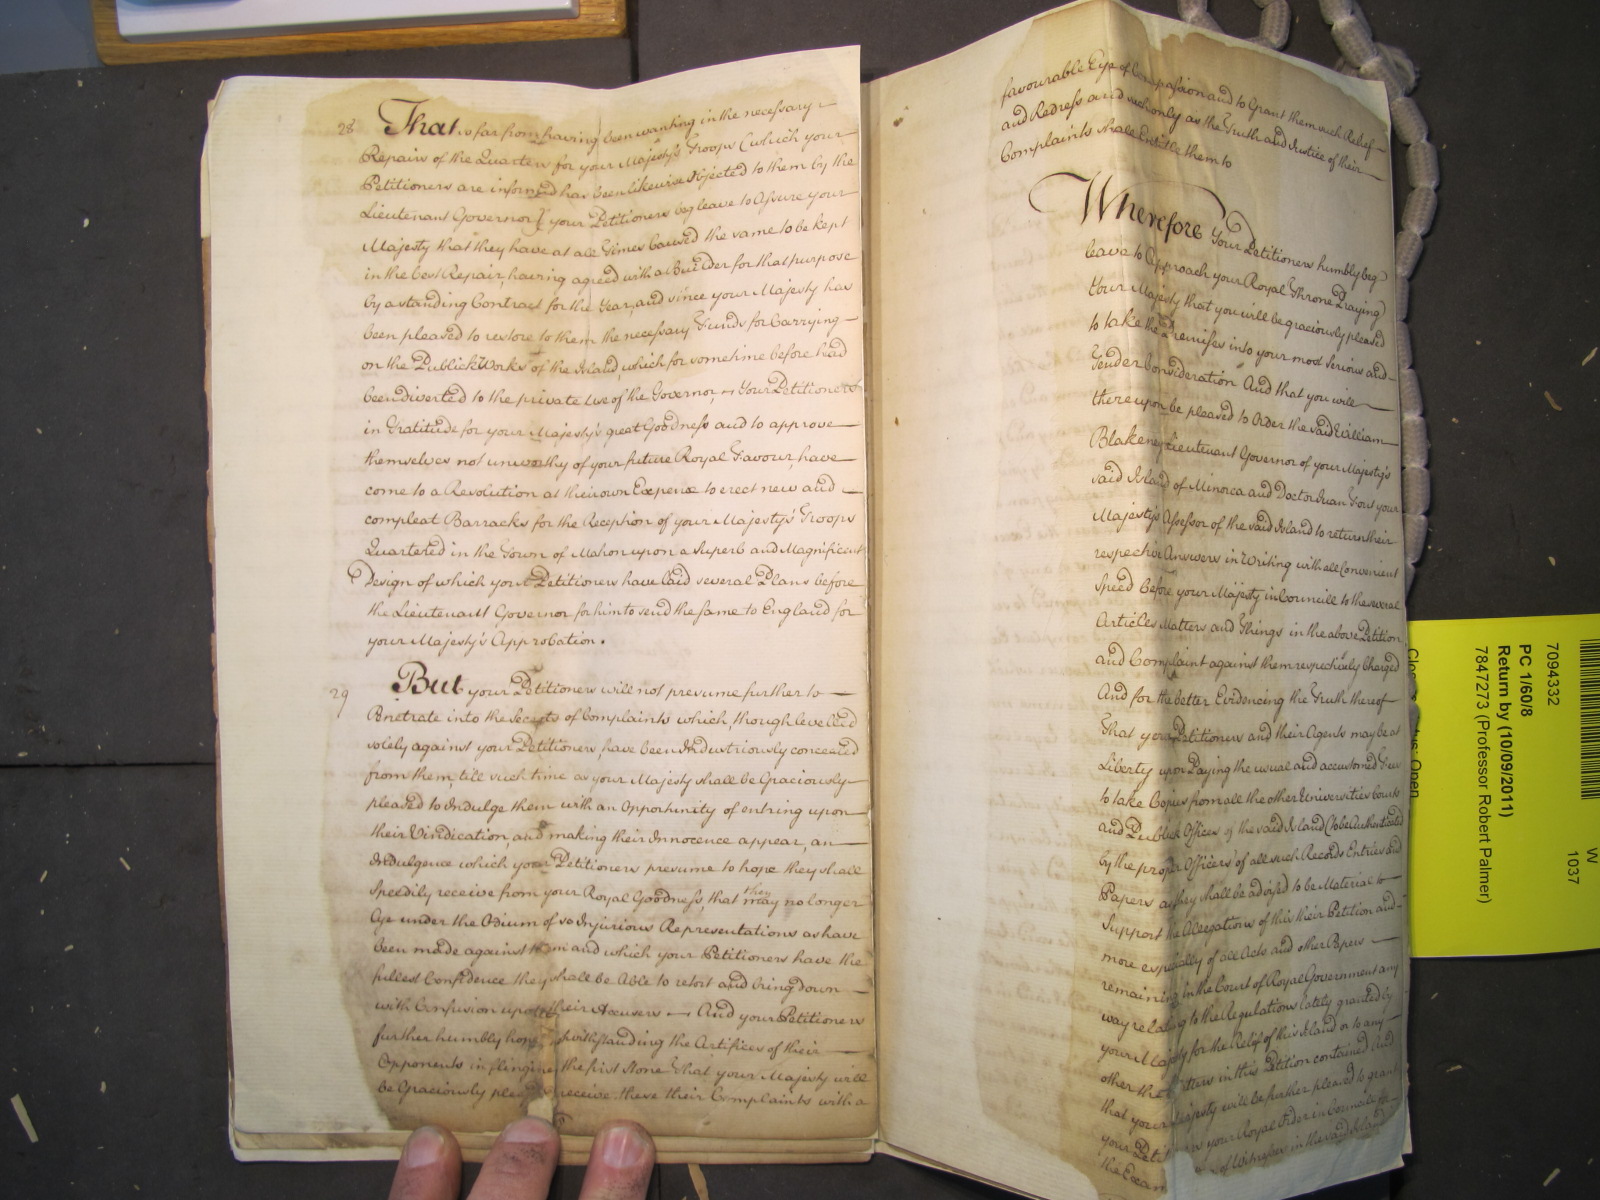 28 That so far from having been wanting in the necessary
Repairs of the Quarters for your Majesty's Troops (which your
Petitioners are informed has been likewise Objected to them by the
Lieutenant Governor) your Petitioners beg leave to Assure your
Majesty that they have at all Times Caused the same to be kept
in the best Repair, having agreed with a Builder for that purpose
by a standing Contract for the Year, and since your Majesty has
been pleased to restore to them the necessary Funds for Carrying
on the Publick Works of the Island, which for sometime before had
been diverted to the private Use of the Governor — Your Petitioners
in Gratitude for your Majesty's great Goodness and to approve
themselves not unworthy of your future Royal Favour, have
come to a Resolution at their own Expence to erect new and
compleat Barracks for the Reception of your Majesty's Troops
Quartered in the Town of Mahon upon a Superb and Magnificent
Design of which your Petitioners have laid several Plans before
the Lieutenant Governor for him to send the same to England for
your Majesty's Approbation.
29 But your Petitioners will not presume further to
Penetrate into the Secrets of Complaints which, though levelled
solely against your Petitioners, have been Industriously concealed
from them, till such time as your Majesty shall be Graciously
pleased to Indulge them with an Opportunity of entring upon
their Vindication, and making their Innocence appear, an
Indulgence which your Petitioners presume to hope they shall
Speedily receive from your Royal Goodness, that they may no longer
lye under the Odium of so Injurious Representations as have
been made against them and which your Petitioners have the
fullest Confidence they shall be Able to retort and bring down
with Confusion upon their Accusers — And your Petitioners
further humbly hope, notwithstanding the Artifices of their
Opponents in flinging the first Stone that your Majesty will
be Graciously pleased receive these their Complaints with a
favourable Eye of Compassion and to Grant them such Relief
and Redress and such only as the Truth and Justice of their
Complaints shall Entitle them to
Wherefore Your Petitioners humbly beg
leave to Approach your Royal Throne Praying
Your Majesty that you will be graciously pleased
to take the Premises into your most Serious and
Tender Consideration And that you will
thereupon be pleased to Order the said William
Blakeney Lieutenant Governor of your Majesty's
said Island of Minorca and Doctor Juan your
Majesty's Assessor of the said Island to return their
respective Answers in Writing with all Convenient
Speed before your Majesty in Councill to the several
Articles Matters and Things in the above Petition
and Complaint against them respectively Charged
And for the better Evidencing the Truth thereof
That your Petitioners and their Agents may be at
Liberty upon Paying the usual and accustomed Fees
to take Copies from all the other Universities Courts
and Publick Offices of the said Island (to be Authenticated
by the proper Officers) of all such Records Entries and
Papers as they shall be advised to be Material to
Support the Allegations of this their Petition and
more especially of all Acts and other Papers
remaining in the Court of Royal Government any
way relating to the Regulations lately granted by
your Majesty for the Relief of this Island or to any
other the Matters in this Petition contained And
that your Majesty will be further pleased to grant
your Petit your Royal Order in Councill for
the Exam of Witnesses in the said Island
7094332
PC 1/600/8
Return by (10/09/2011)
7847273 (Professor Robert Palmer)
W
1037
Open